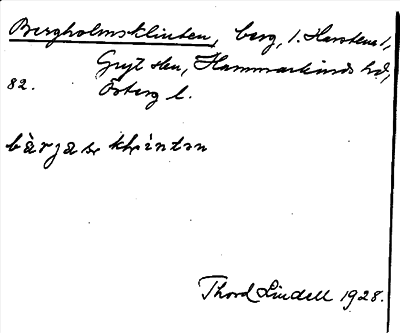 Bergholmsklinten, berg, l. Harstena 1,
Gryt skn, Hammarkinds hd,
82. Österg l.
bàrjas klintn
Thord Lindell 1928.